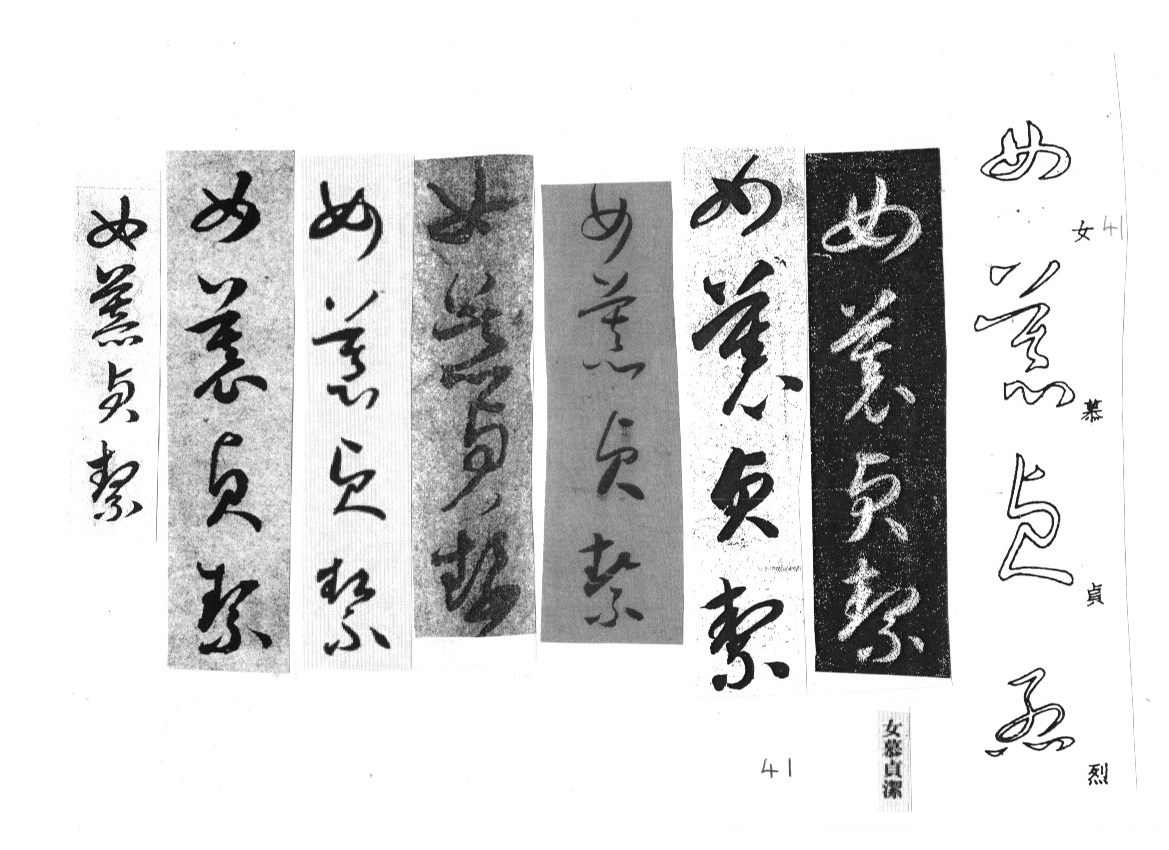 女慕貞烈
女
41
慕
貞
烈
女慕貞絜
女慕貞絜
女慕貞絜
女慕貞絜
女慕貞絜
女慕貞絜
女慕貞絜
女慕貞潔
41